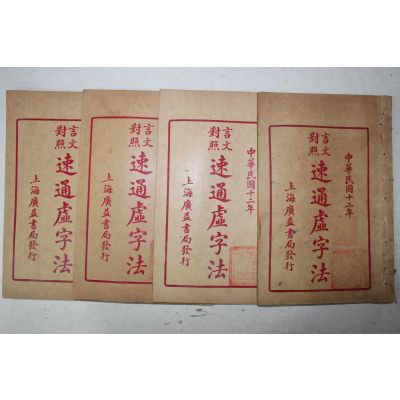 中華民國十二年
言文對照
速通虛字法
上海廣益書局發行
中華民國十二年
言文對照
速通虛字法
上海廣益書局發行
言文對照
速通虛字法
上海廣益書局發行
言文對照
速通虛字法
上海廣益書局發行